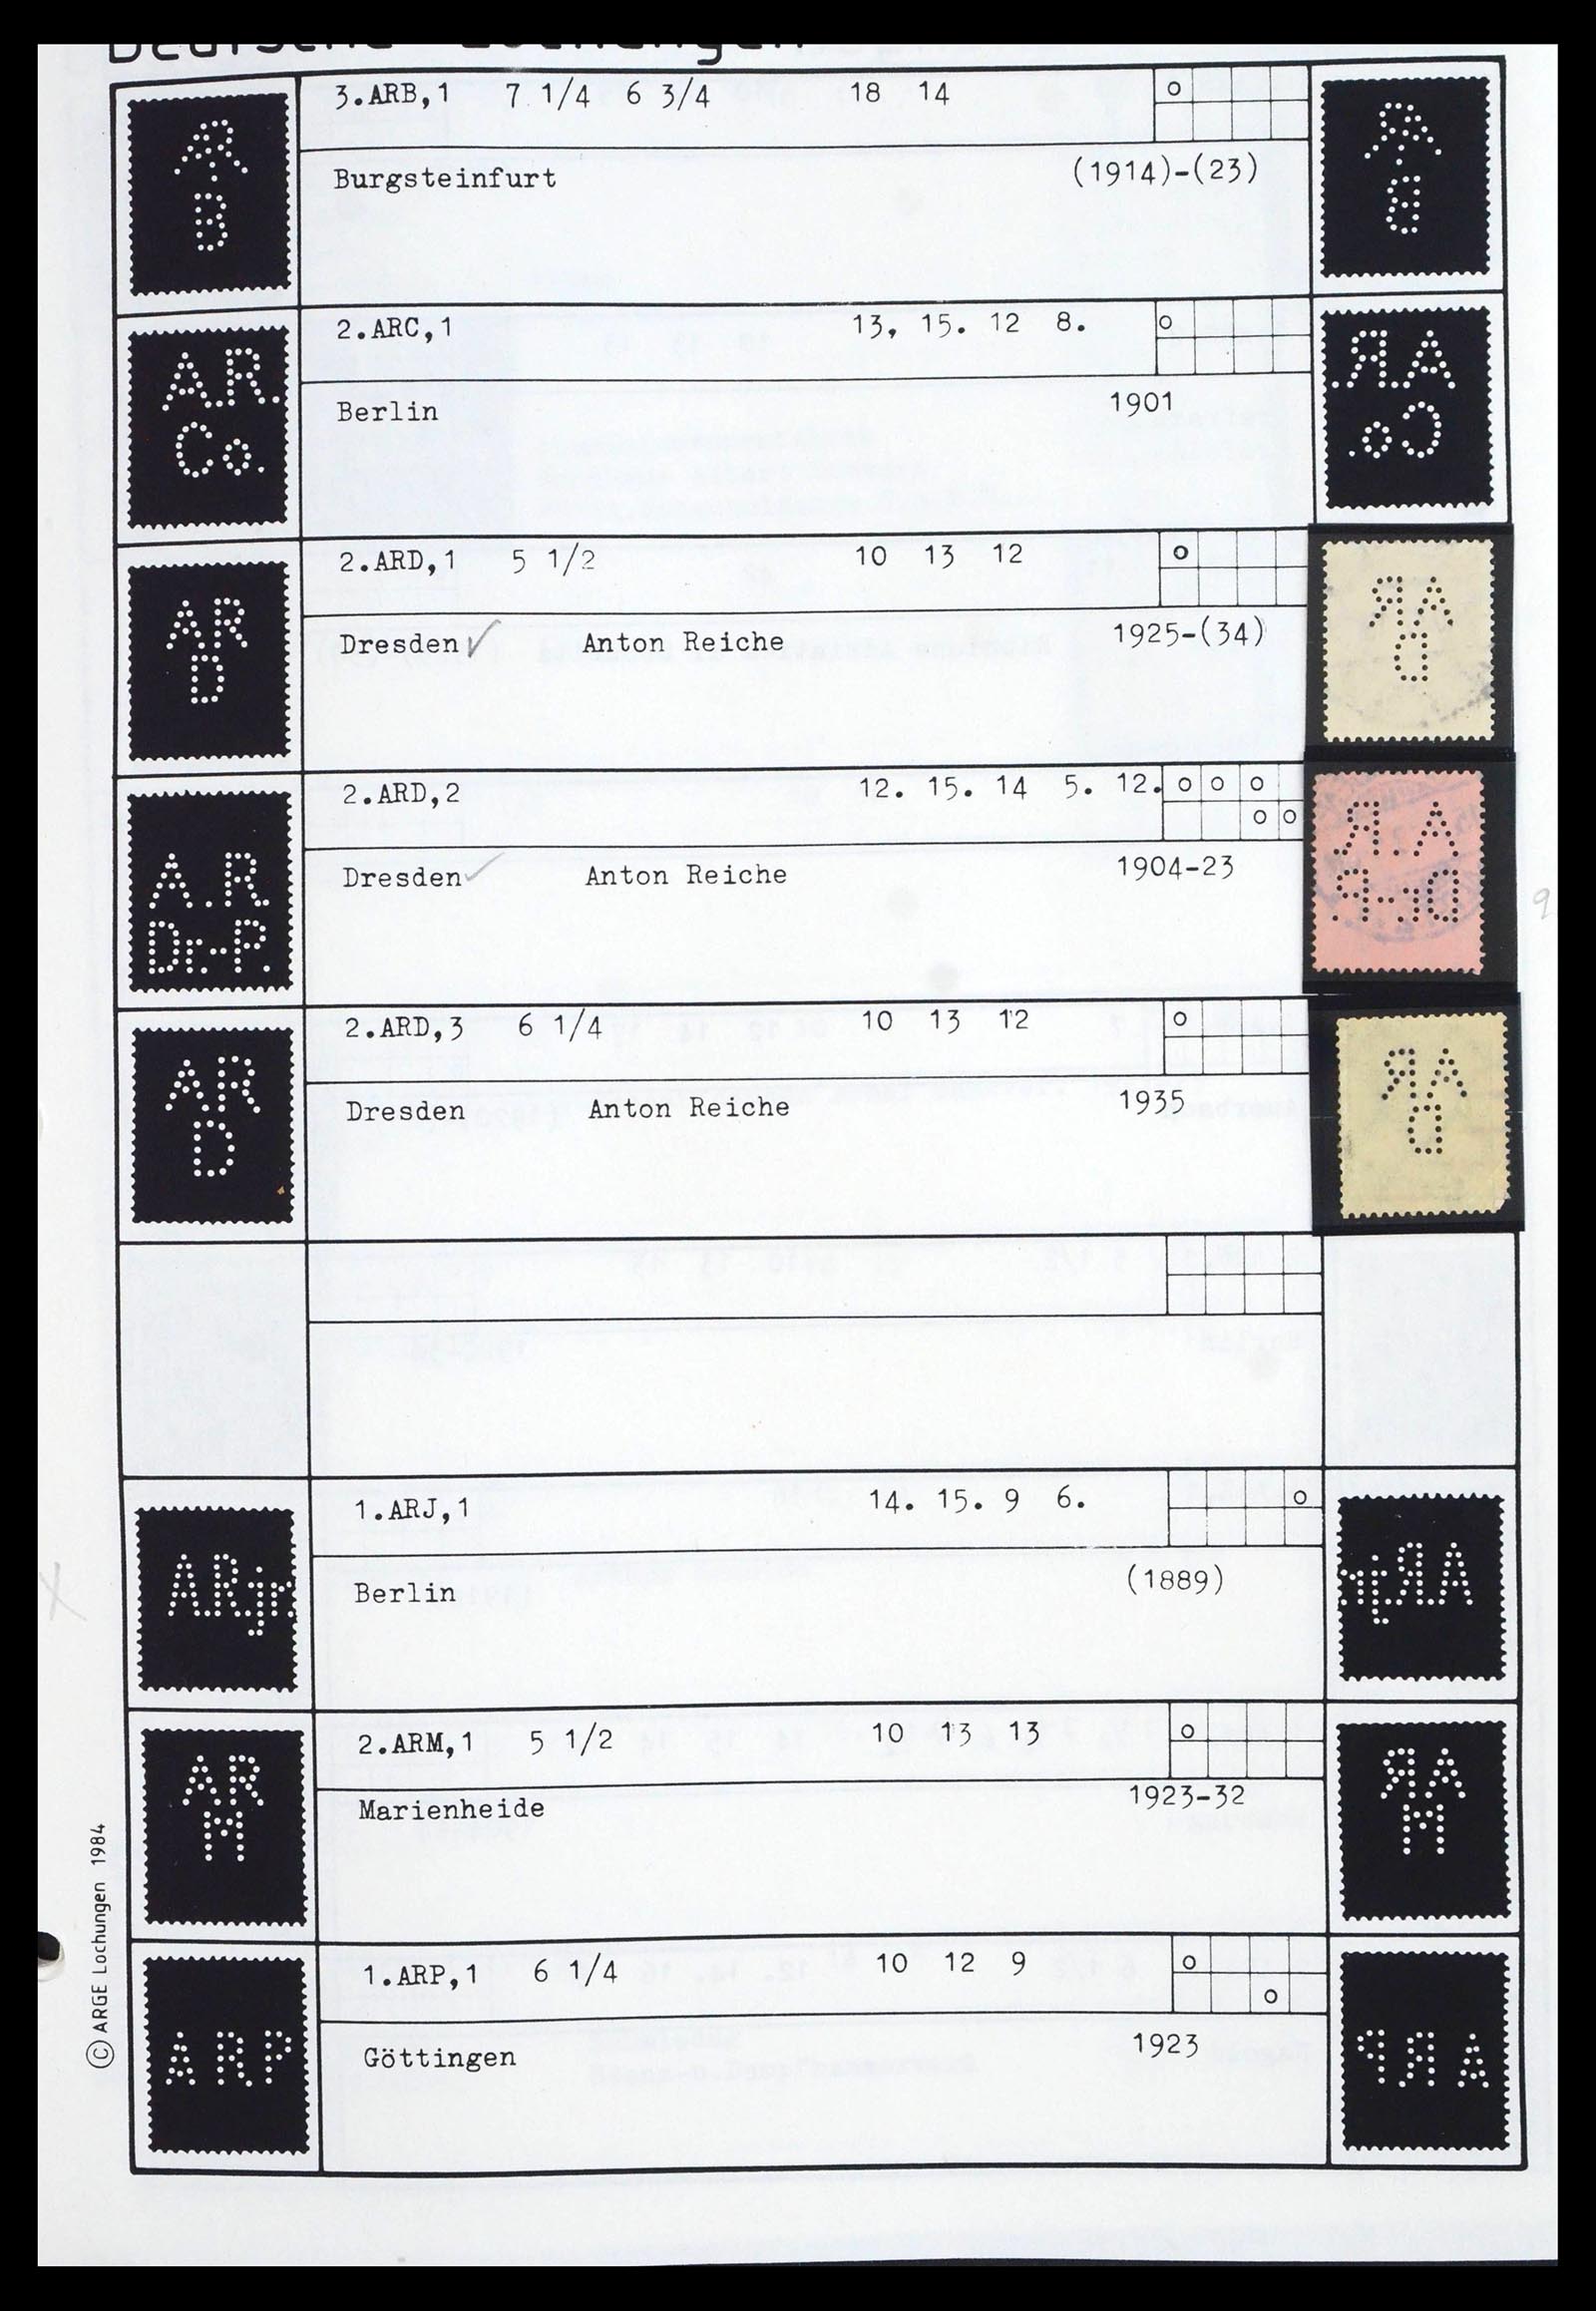 Deutsche Lochungen
AR
B
3.ARB,1 7 1/4 6 3/4 18 14
Burgsteinfurt (1914)-(23)
A.R.
Co.
2.ARC,1 13, 15. 12 8.
Berlin 1901
AR
D
2.ARD,1 5 1/2 10 13 12
Dresden Anton Reiche 1925-(34)
A.R.
Dr.-P.
2.ARD,2 12. 15. 14 5. 12.
Dresden Anton Reiche 1904-23
AR
D
2.ARD,3 6 1/4 10 13 12
Dresden Anton Reiche 1935
A.R.jr.
1.ARJ,1 14. 15. 9 6.
Berlin (1889)
AR
M
2.ARM,1 5 1/2 10 13 13
Marienheide 1923-32
ARP
1.ARP,1 6 1/4 10 12 9
Göttingen 1923
© ARGE Lochungen 1984